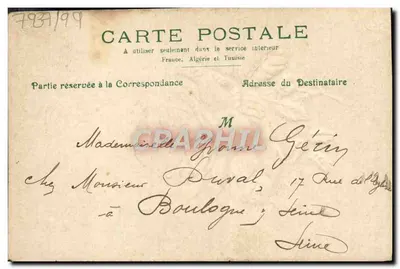 7937/99
CARTE POSTALE
A utiliser seulement dans le service intérieur
France, Algérie et Tunisie
Partie réservée à la Correspondance
Adresse du Destinataire
M
Mademoiselle
chez Monsieur Duval, 17 Rue de l'Eglise
à Boulogne s/ Seine
Seine